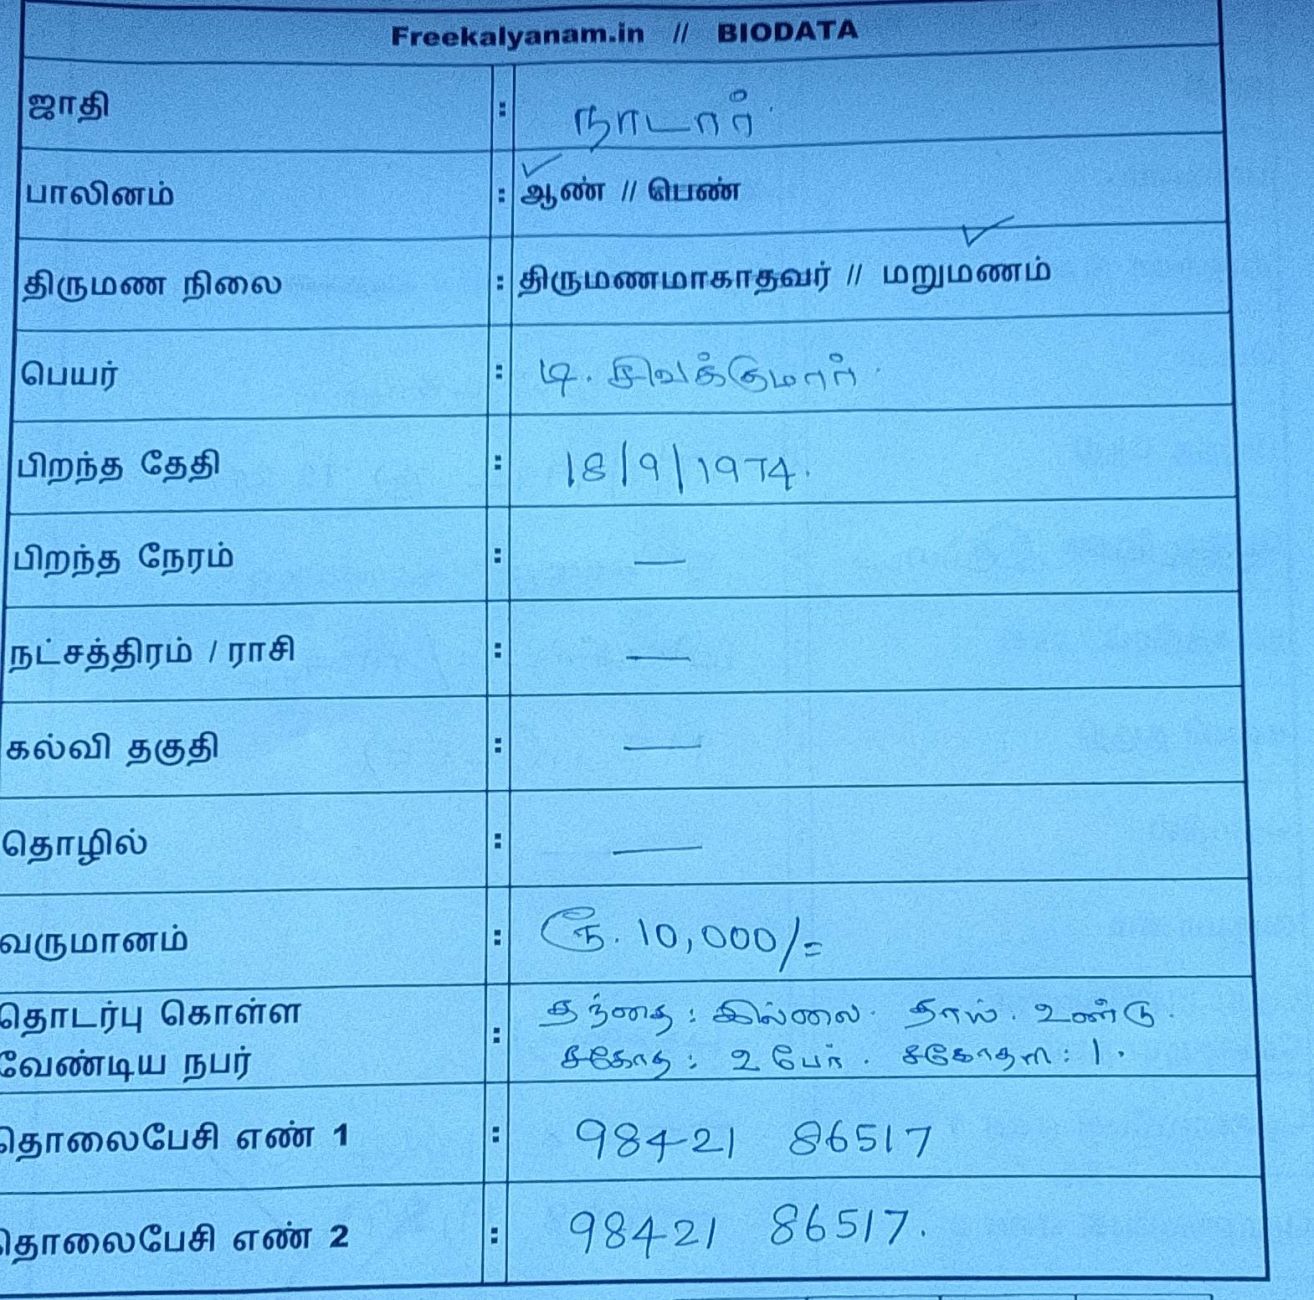 Freekalyanam.in // BIODATA
ஜாதி : நாடார்
பாலினம் : ஆண் // பெண்
திருமண நிலை : திருமணமாகாதவர் // மறுமணம்
பெயர் : டி. சிவக்குமார்
பிறந்த தேதி : 18/9/1974.
பிறந்த நேரம் : —
நட்சத்திரம் / ராசி : —
கல்வி தகுதி : —
தொழில் : —
வருமானம் : ரூ. 10,000/=
தொடர்பு கொள்ள : தந்தை : இல்லை. தாய். உண்டு.
வேண்டிய நபர் சகோத : 2 பேர். சகோதரி : 1.
தொலைபேசி எண் 1 : 98421 86517
தொலைபேசி எண் 2 : 98421 86517.